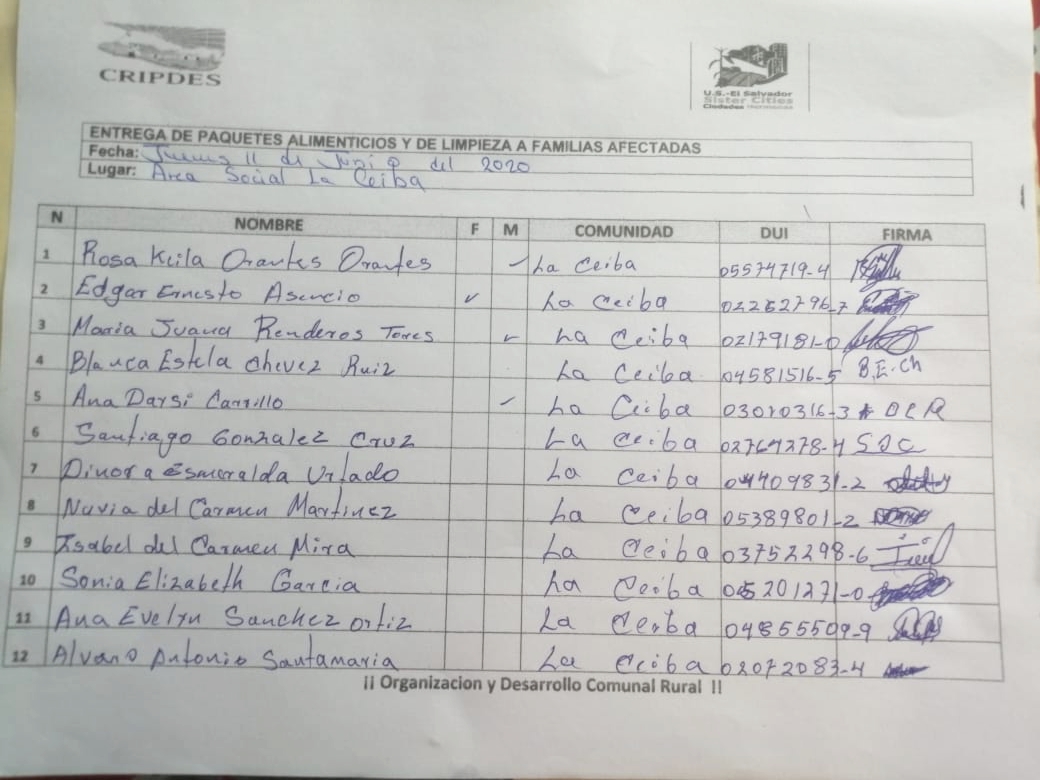 CRIPDES
U.S.-El Salvador
Sister Cities
Ciudades Hermanas
ENTREGA DE PAQUETES ALIMENTICIOS Y DE LIMPIEZA A FAMILIAS AFECTADAS
Fecha: Jueves 11 de Junio del 2020
Lugar: Area Social La Ceiba
N NOMBRE F M COMUNIDAD DUI FIRMA
1 Rosa Keila Orantes Orantes La Ceiba 05574719-4
2 Edgar Ernesto Asencio La Ceiba 02262796-7
3 Maria Juana Renderos Torres La Ceiba 02179181-0
4 Blanca Estela Chevez Ruiz La Ceiba 04581516-5 B.E.Ch
5 Ana Darsi Carrillo La Ceiba 03010316-3
6 Santiago Gonzalez Cruz La Ceiba 02764278-4
7 Dinora Esmeralda Urtado La Ceiba 04409831-2
8 Nuvia del Carmen Martinez La Ceiba 05389801-2
9 Isabel del Carmen Mira La Ceiba 03752298-6
10 Sonia Elizabeth Garcia La Ceiba
11 Ana Evelyn Sanchez Ortiz La Ceiba 04855509-9
12 Alvaro Antonio Santamaria La Ceiba 02072083-4
¡¡ Organizacion y Desarrollo Comunal Rural !!